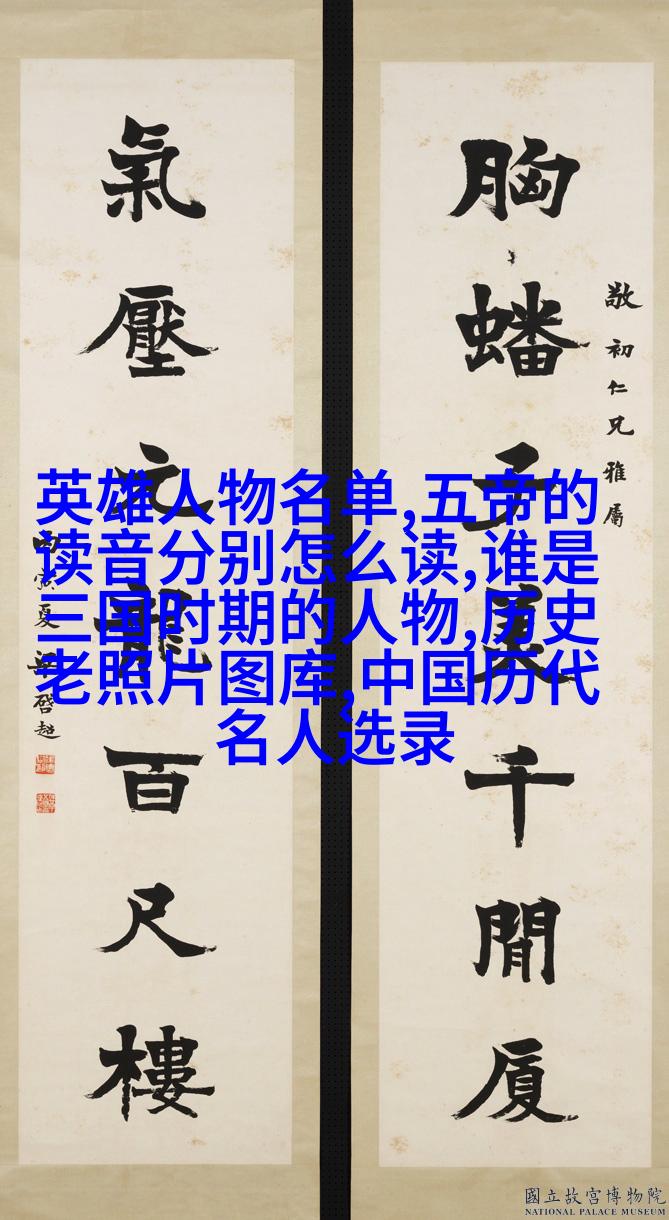 胸蟠子美千閒厦
敬初仁兄雅屬
氣壓元龍百尺樓
寅夏梁啓超
英雄人物名单,五帝的
读音分别怎么读,谁是
三国时期的人物,历史
老照片图库,中国历代
名人选录
國立故宮博物院
NATIONAL PALACE MUSEUM